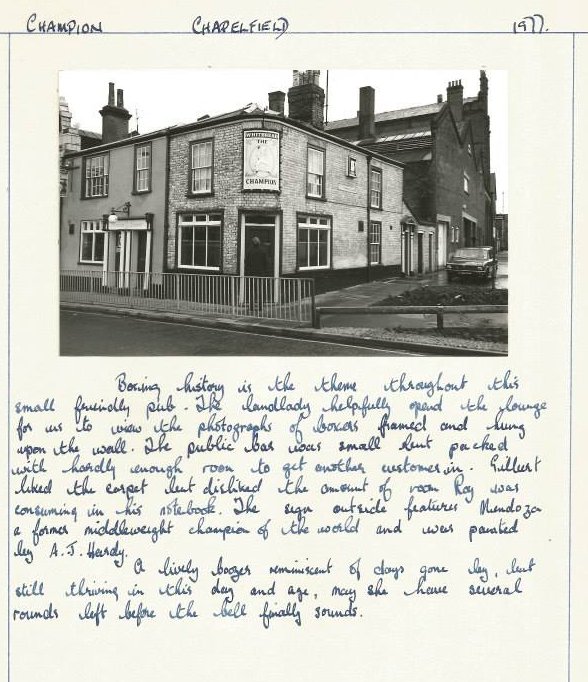 CHAMPION CHAPELFIELD 1977.
WHITBREAD
THE
CHAMPION
Boxing history is the theme throughout this
small freindly pub. The landlady helpfully opend the lounge
for us to view the photographs of boxers framed and hung
upon the wall. The public bar was small but packed
with hardly enough room to get another customer in. Gilbert
liked the carpet but disliked the amount of room Roy was
consuming in his notebook. The sign outside features Mendoza
a former middleweight champion of the world and was painted
by A.J. Hardy.
A lively boozer reminiscent of days gone by, but
still thriving in this day and age, may she have several
rounds left before the bell finally sounds.